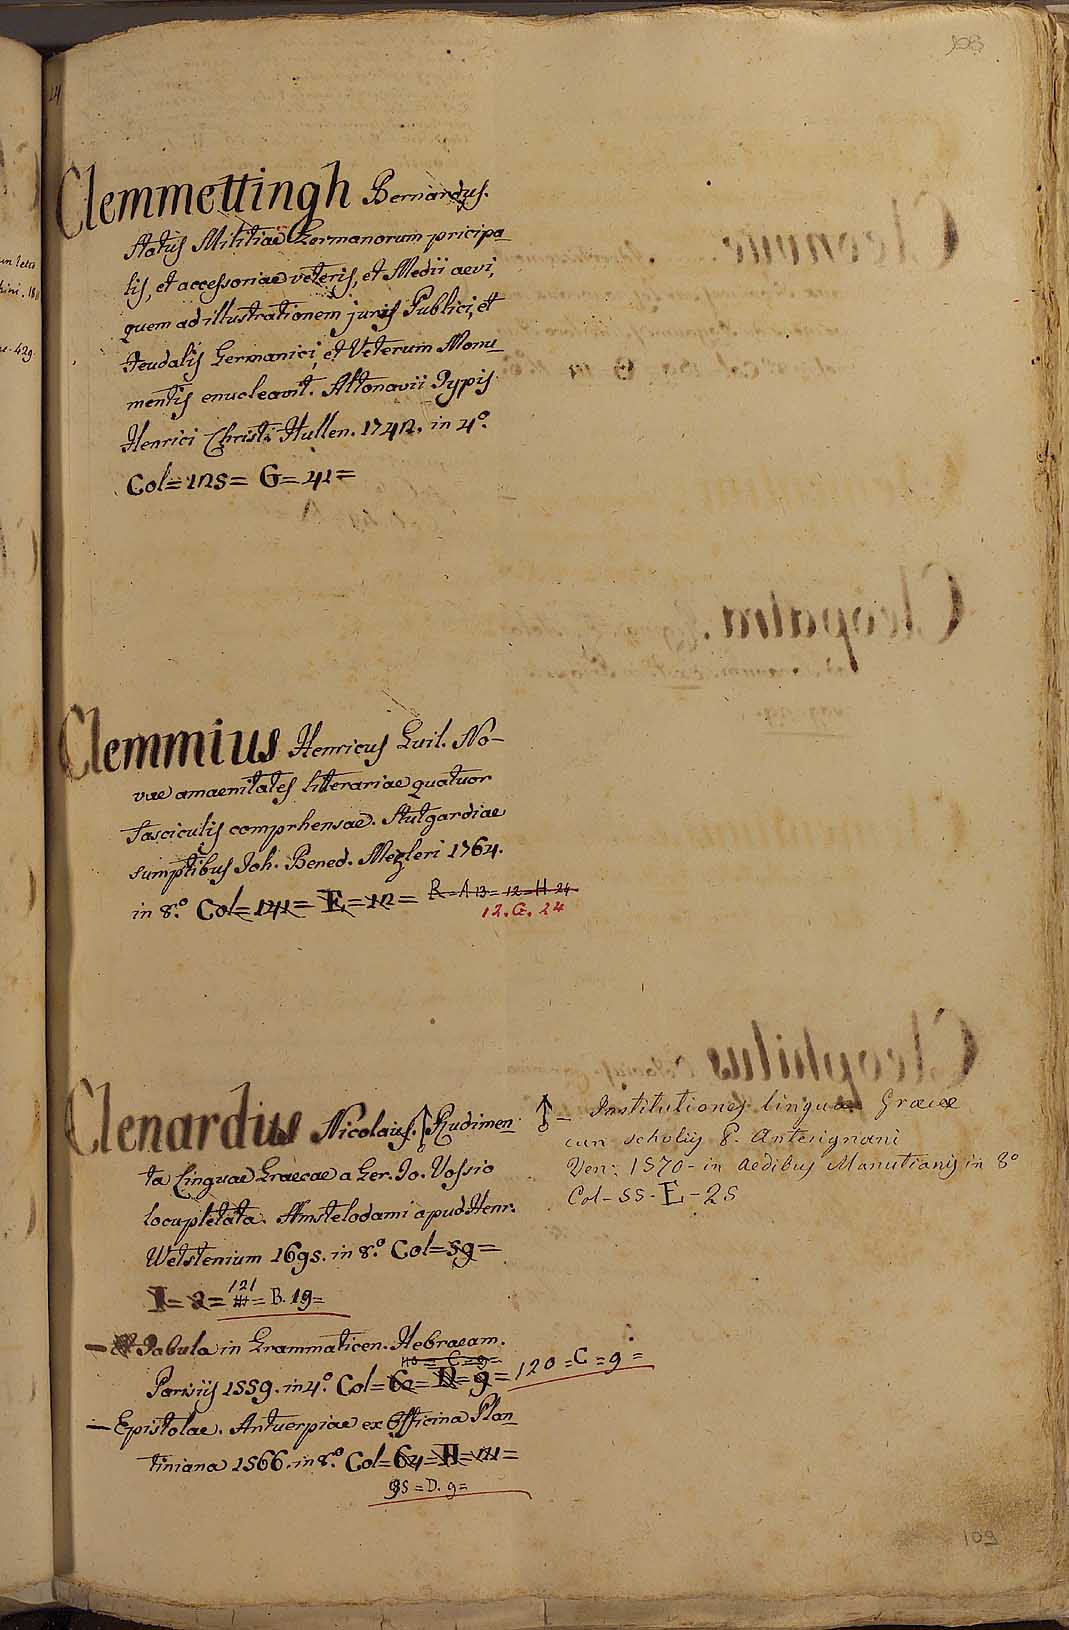 108
Clemmettingh Bernardus.
Status Militiae Germanorum pricipa
lis, et accessoriae veteris, et Medii aevi,
quem ad illustrationem juris Publici, et
Feudalis Germanici, et Veterum Monu
mentis enucleavit. Altonavii Typis
Henrici Christi Hullen. 1742. in 4.º
Col=125= G=41=
Clemmius Henricus Guil. No-
vae amaenitates litterariae quatuor
Fasciculis comprhensae. Stutgardiae
sumptibus Joh. Bened. Mezleri 1764.
in 8.º Col=141= E=12= R=A 13= 12=H 24
12. G. 24
Clenardius Nicolaus. Rudimen
ta Linguae Graecae a Ger. Jo. Vossio
locupletata. Amstelodami apud Henr.
Wetstenium 1695. in 8.º Col=59=
I=2= 121 = B. 19=
— Tabula in Grammaticen Hebraeam.
110=C=9=
Parisiis 1559. in 4.º Col=62=D=9= 120=C=9=
— Epistolae. Antuerpiae ex Officina Plan
tiniana 1566. in 8.º Col=64=H=21=
95=D. 9=
— Institutiones linguae Graecae
cum scholiis P. Antesignani
Ven: 1570- in Aedibus Manutianis in 8º
Col-55-E-25
109